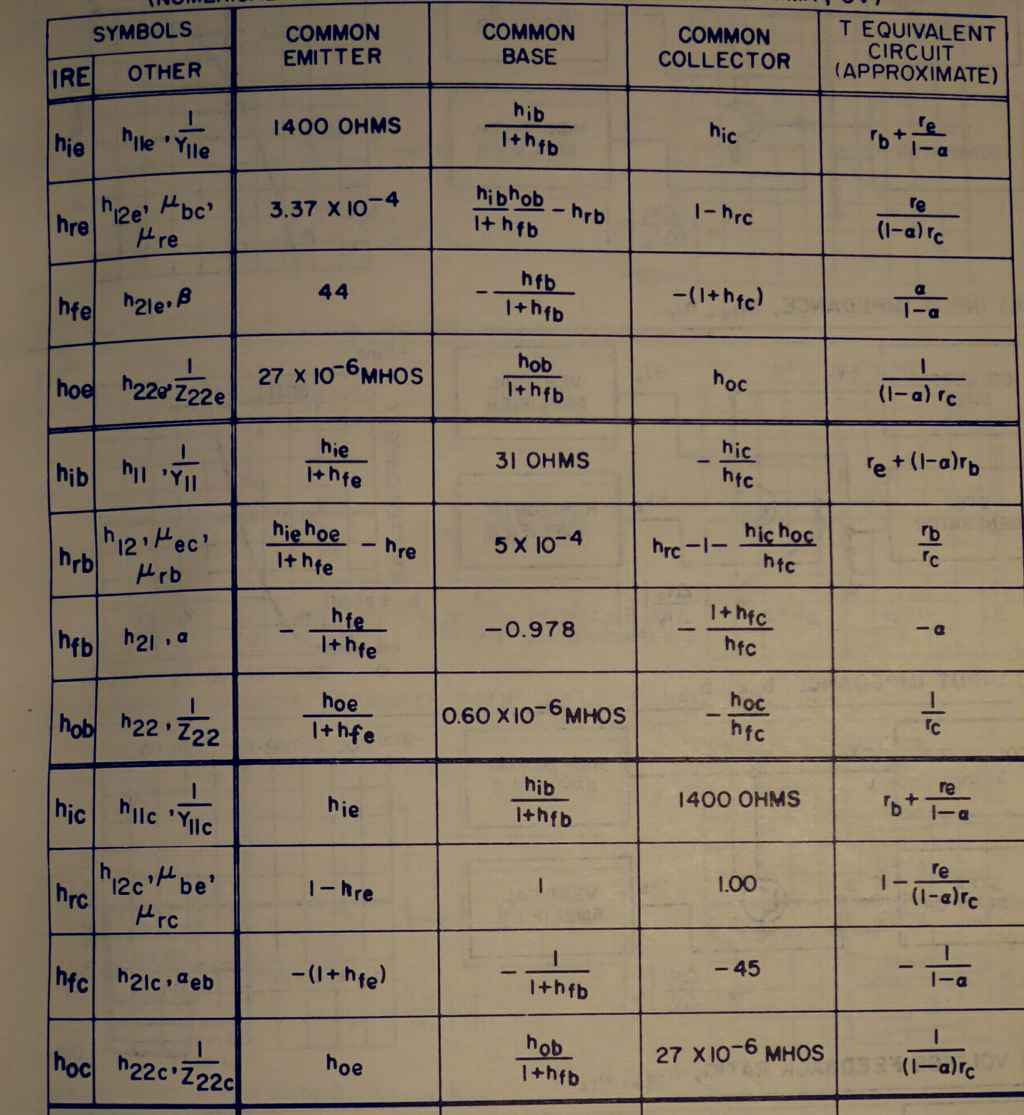 SYMBOLS | COMMON EMITTER | COMMON BASE | COMMON COLLECTOR | T EQUIVALENT CIRCUIT (APPROXIMATE)
IRE | OTHER
hie | h11e, 1/Y11e | 1400 OHMS | hib/(1+hfb) | hic | rb + re/(1-α)
hre | h12e, μbc, μre | 3.37 X 10⁻⁴ | hib hob/(1+hfb) - hrb | 1-hrc | re/((1-α)rc)
hfe | h21e, β | 44 | - hfb/(1+hfb) | -(1+hfc) | α/(1-α)
hoe | h22e, 1/Z22e | 27 X 10⁻⁶ MHOS | hob/(1+hfb) | hoc | 1/((1-α) rc)
hib | h11, 1/Y11 | hie/(1+hfe) | 31 OHMS | - hic/hfc | re + (1-α)rb
hrb | h12, μec, μrb | hie hoe/(1+hfe) - hre | 5 X 10⁻⁴ | hrc - 1 - hic hoc/hfc | rb/rc
hfb | h21, α | - hfe/(1+hfe) | -0.978 | - (1+hfc)/hfc | -α
hob | h22, 1/Z22 | hoe/(1+hfe) | 0.60 X 10⁻⁶ MHOS | - hoc/hfc | 1/rc
hic | h11c, 1/Y11c | hie | hib/(1+hfb) | 1400 OHMS | rb + re/(1-α)
hrc | h12c, μbe, μrc | 1-hre | 1 | 1.00 | 1 - re/((1-α)rc)
hfc | h21c, αeb | -(1+hfe) | - 1/(1+hfb) | -45 | - 1/(1-α)
hoc | h22c, 1/Z22c | hoe | hob/(1+hfb) | 27 X 10⁻⁶ MHOS | 1/((1-α)rc)